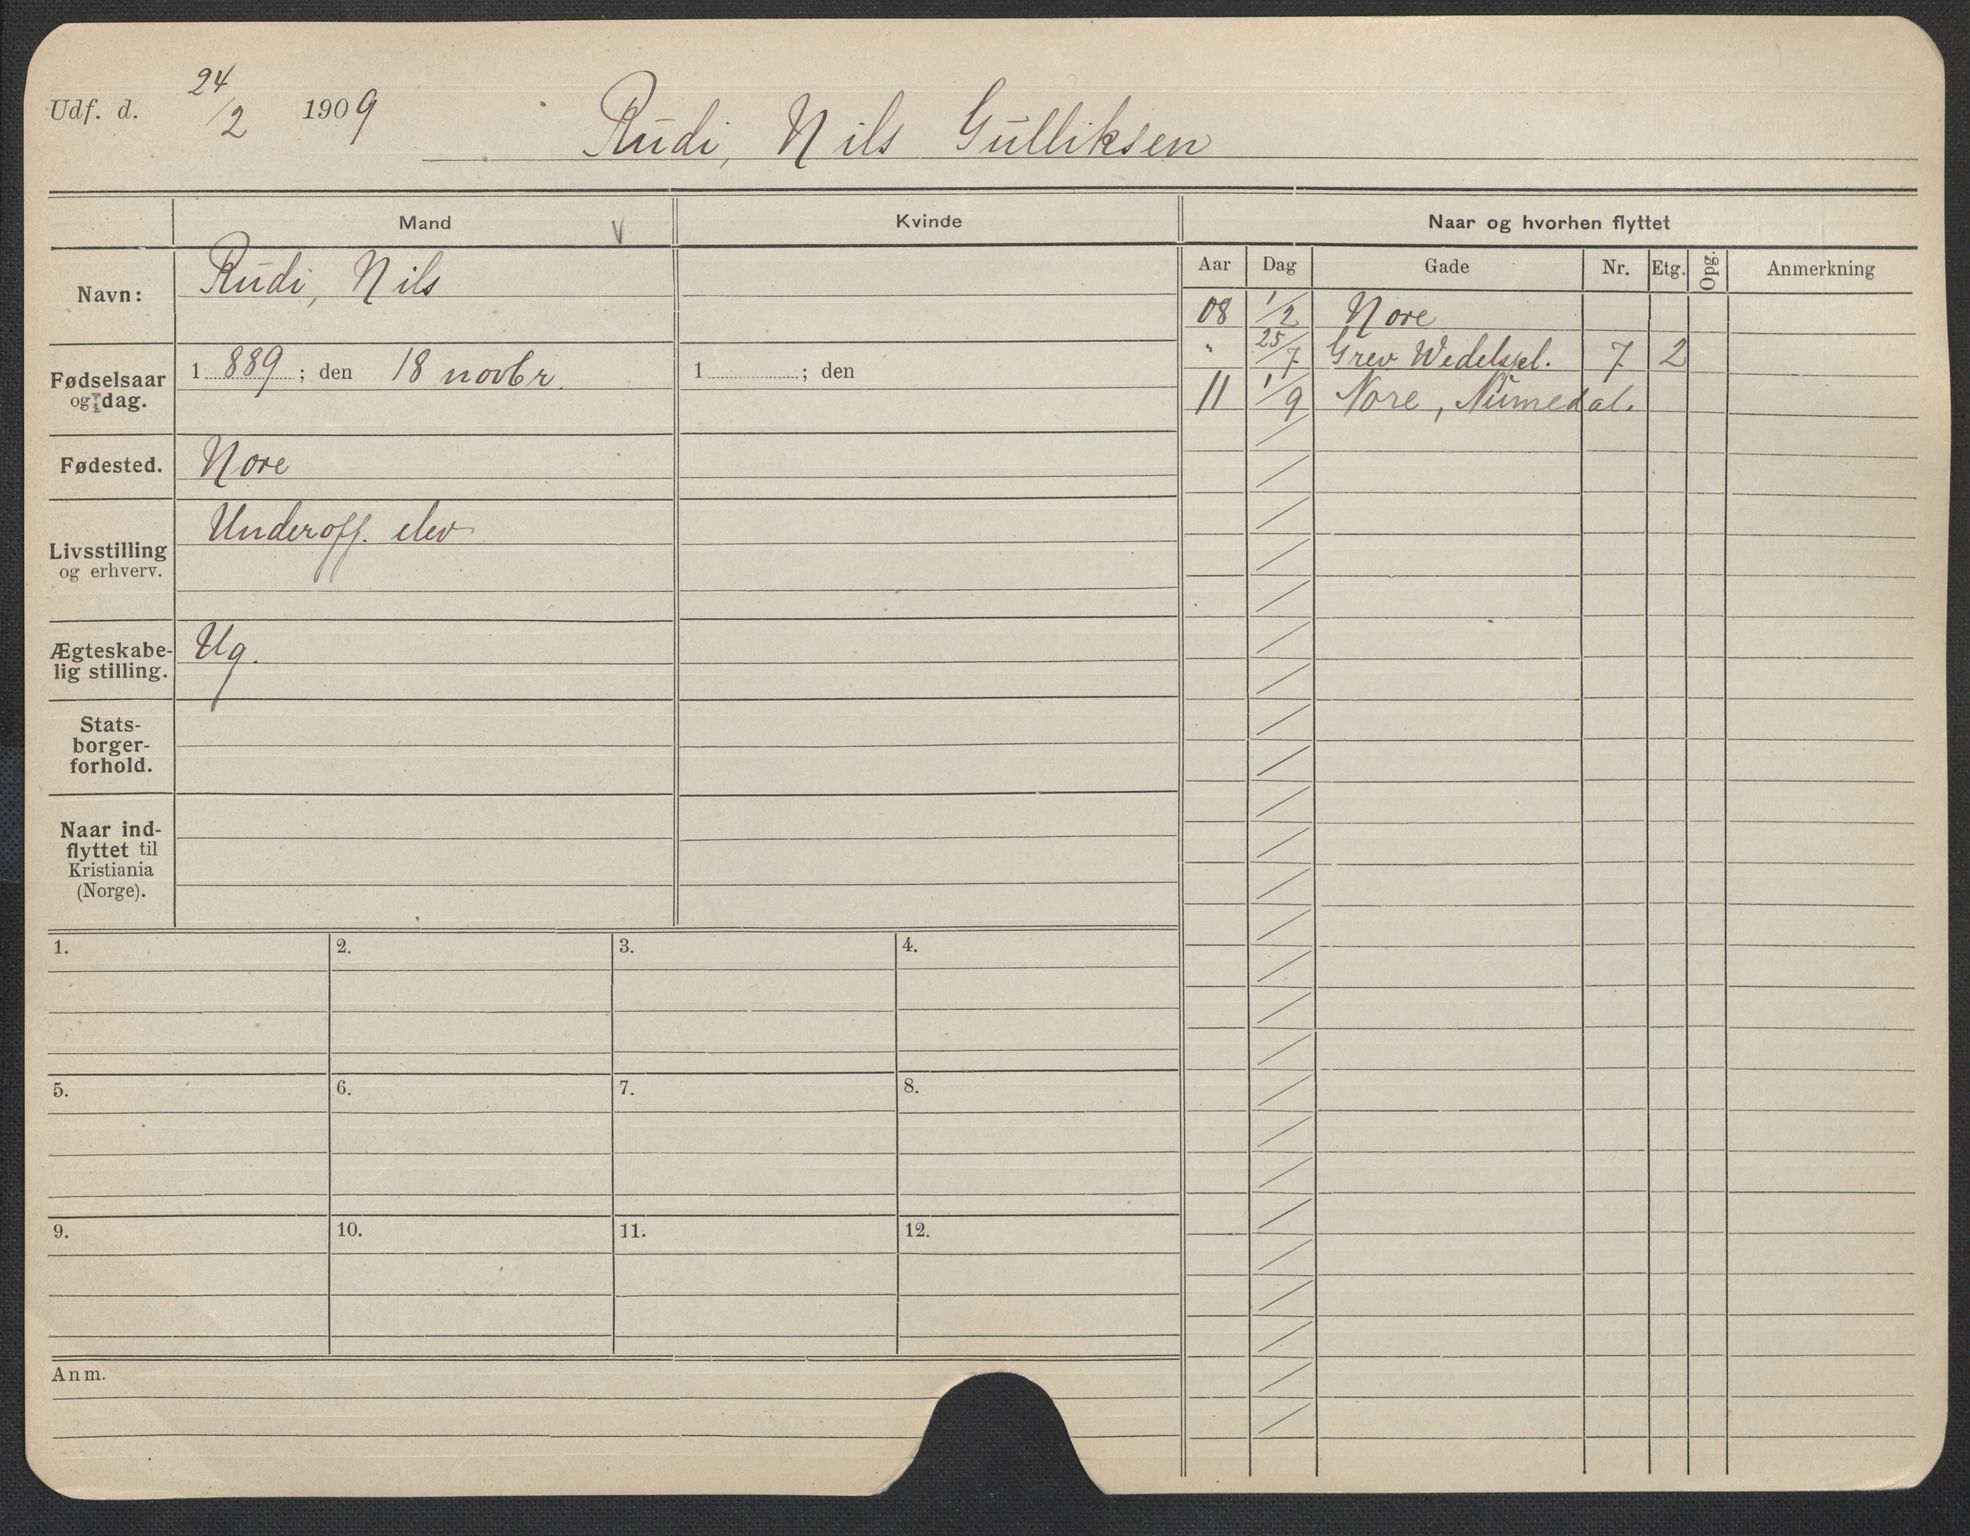 Udf. d. 24/2 1909 Rudi, Nils Gulliksen
Mand V Kvinde Naar og hvorhen flyttet
Aar Dag Gade Nr. Etg. Opg. Anmerkning
Navn: Rudi, Nils
08 1/2 Nore
" 25/7 Grev Wedelspl. 7 2
11 1/9 Nore, Numedal.
Fødselsaar
og dag.
1 889 ; den 18 novbr. 1 ; den
Fødested. Nore
Livsstilling
og erhverv.
Underoff. elev
Ægteskabe-
lig stilling.
Ug.
Stats-
borger-
forhold.
Naar ind-
flyttet til
Kristiania
(Norge).
1. 2. 3. 4.
5. 6. 7. 8.
9. 10. 11. 12.
Anm.